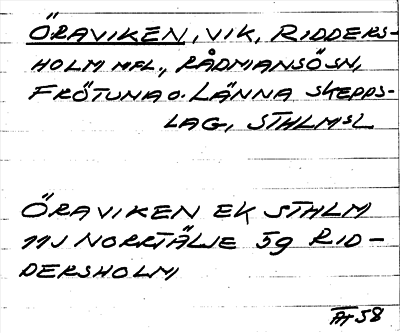 ÖRAVIKEN, VIK, RIDDERS-
HOLM MFL., RÅDMANSÖSN,
FRÖTUNA O. LÄNNA SKEPPS-
LAG, STHLMSL
ÖRAVIKEN EK STHLM
11J NORRTÄLJE 5g RID-
DERSHOLM
58